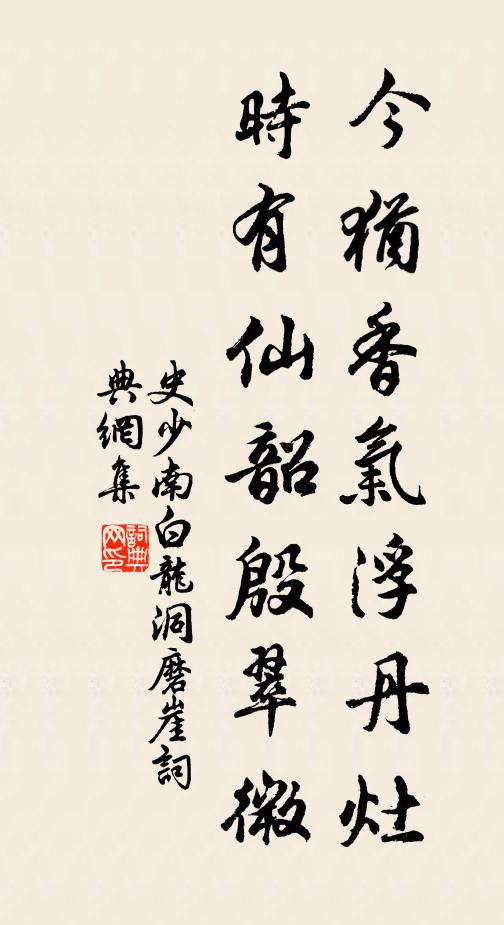 今猶香氣浮丹灶
時有仙韶殷翠微
史少南白龍洞磨崖詞
典網集
詞典網印